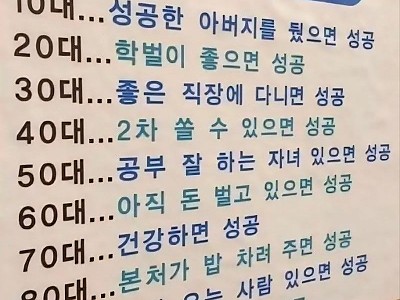 10대...성공한 아버지를 뒀으면 성공
20대...학벌이 좋으면 성공
30대...좋은 직장에 다니면 성공
40대...2차 쏠 수 있으면 성공
50대...공부 잘 하는 자녀 있으면 성공
60대...아직 돈 벌고 있으면 성공
70대...건강하면 성공
80대...본처가 밥 차려 주면 성공
오는 사람 있으면 성공